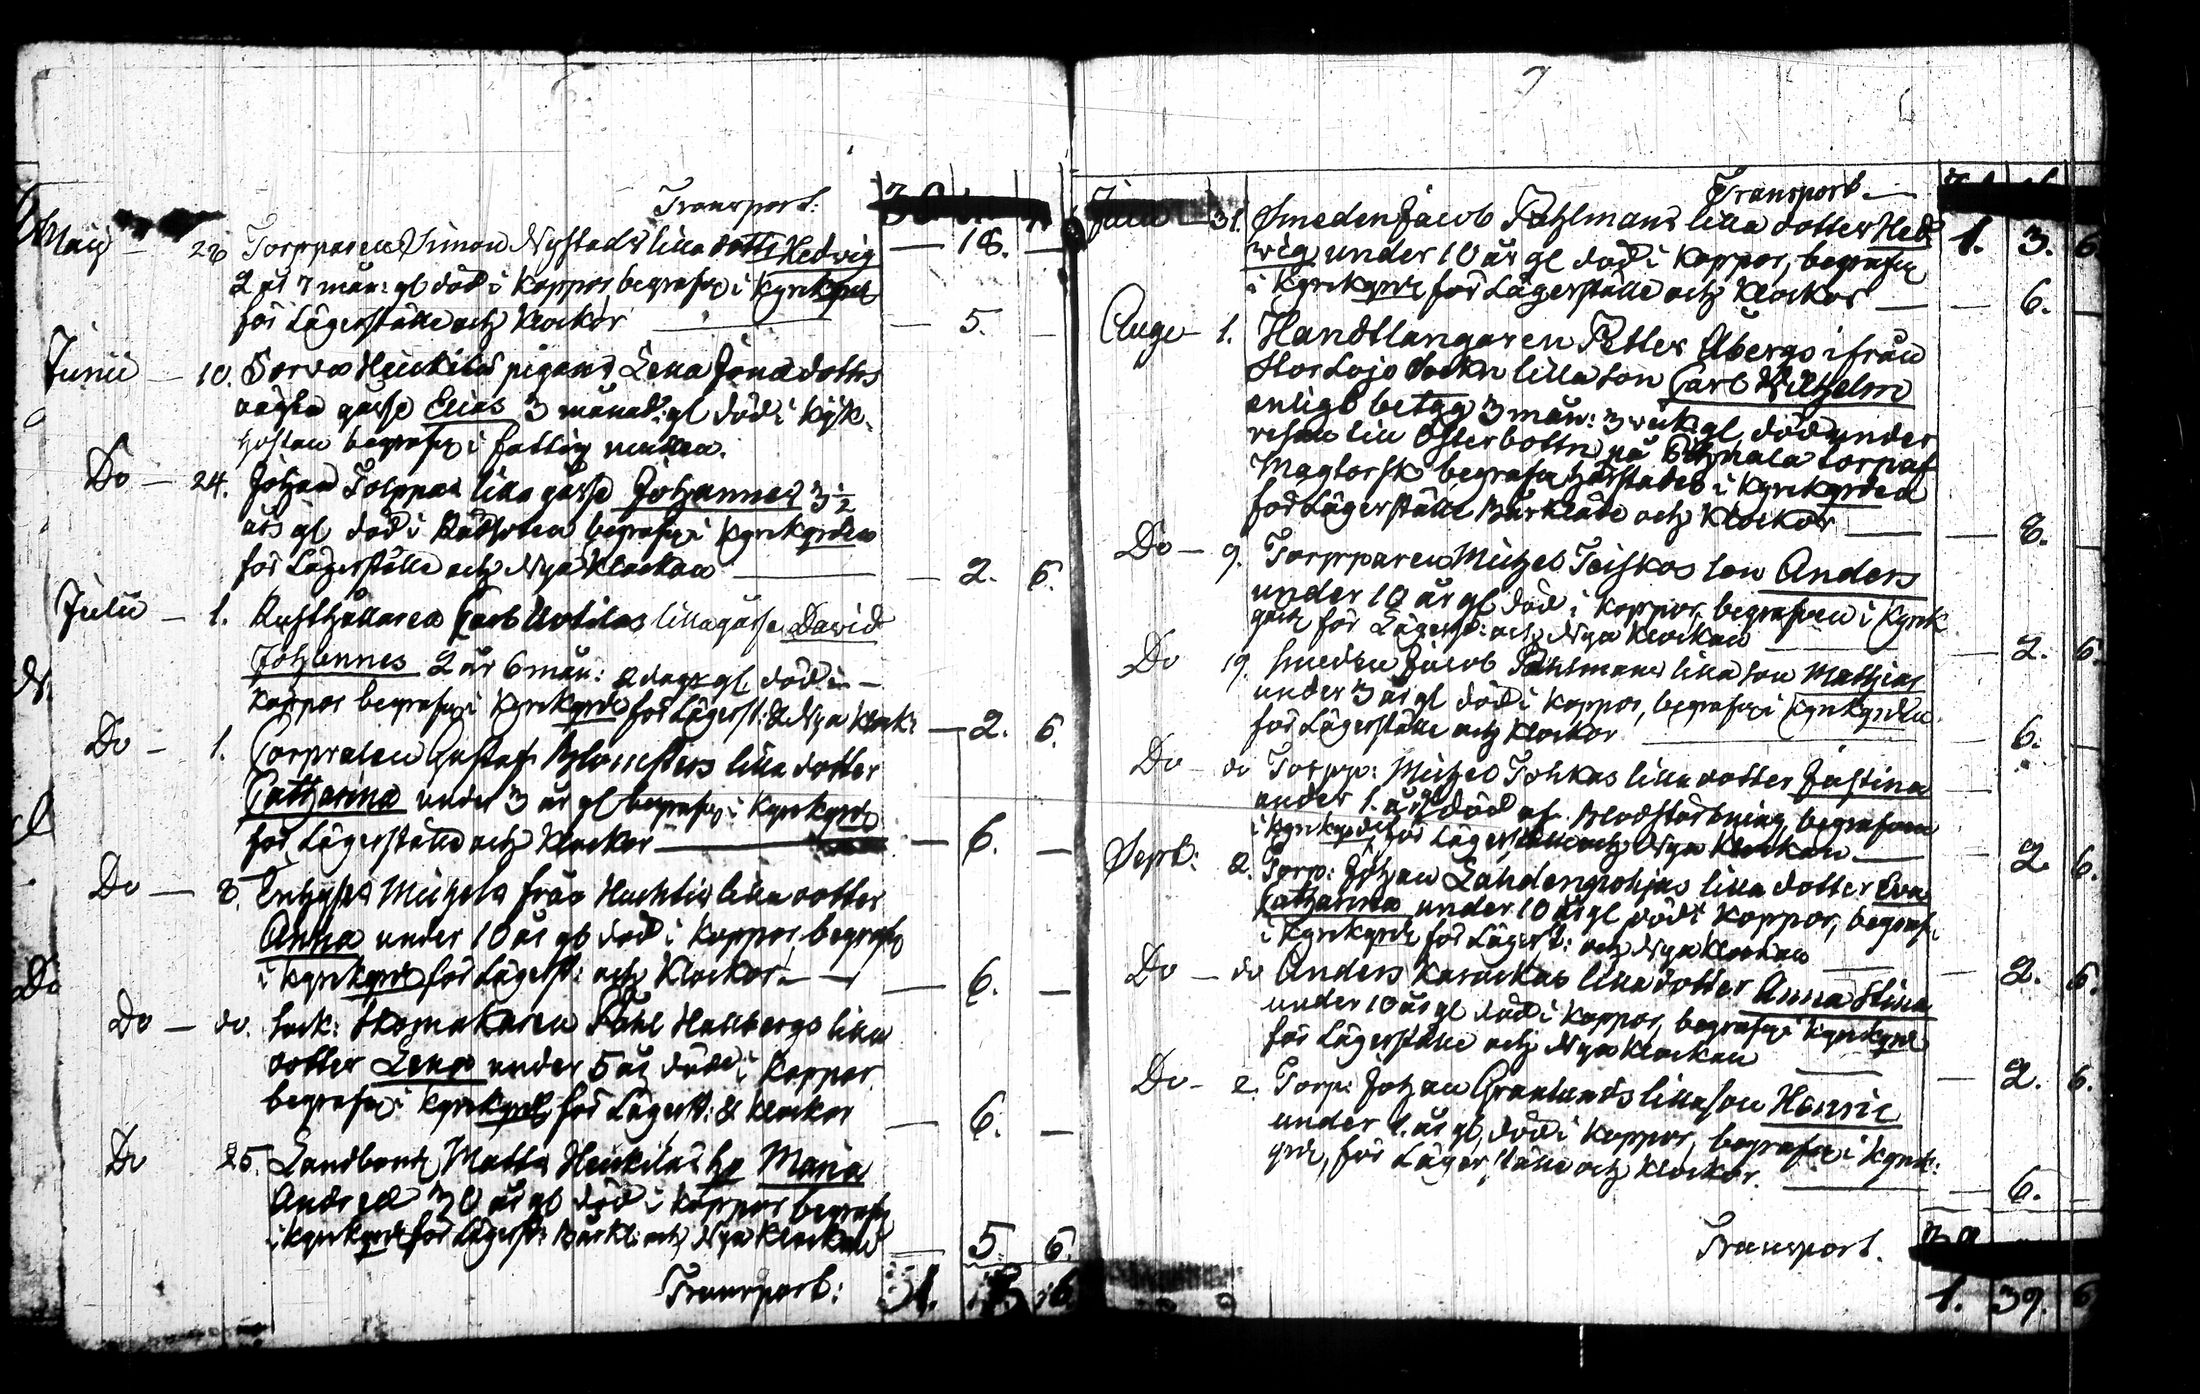 Transport:
Maij — 28 Torpparen Simon Nystads lilla dottr Hedvig — 18. —
2 år 7 mån: gl död i Koppor begrafn i Kyrkgrd
för Lägerställe och Klockor — 5. —
Junii — 10. Heickilas pigans Lena Jönsdotters
oägta gosse Elias 3 månad: gl död i Kik-
hostan begrafn i fattig mullen.
Do — 24. Johan Torppas lilla gosse Johannes 3 1/2
års gl död i Rödsoten begrafn i Kyrkgrden
för Lägerställe och Nya Klockan — 2. 6.
Julii — 1. Rusthållaren Carl lilla gosse David
Johannes 2 år 6 mån: 2 dagr gl. död i —
Koppor begrafn i Kyrkgrd för Lägerst: & Nya Klock: — 2. 6.
Do — 1. Corpralen Gustaf Blomsters lilla dotter
Catharina under 3 år gl begrafn i Kyrkgrd
för Lägerställe och Klockor — 6. —
Do — 8. Michels från lilla dotter
Anna under 10 år gl död i Koppor begrafn
i Kyrkgrd för Lägerst: och Klockor — 6. —
Do — do. Sock: Skomakaren Påhl Hallbergs lilla
dotter Lena under 5 år död i Koppor
begrafn i Kyrkgrd för Lägerst: & Klockor — 6. —
Do 25. Landbond Matts Heickilas hu Maria
Andred 30 år gl död i Koppor begrafn
i Kyrkgrd för Lägerst: Bårkl: och Nya Klockan — 5. 6.
Transport: 31. 5 6.
Transport —
Julii — 31. Smeden Jacob Pahlmans lilla dotter Hed 1. 3. 6
wig under 10 år gl död i Koppor, begrafn
i Kyrkgrd för Lägerställe och Klockor — 6. —
Aug — 1. Handtlangaren Petter Åbergs ifrån
Stor Lojo Sockn lilla son Carl Wilhelm
enligt betyg 3 mån: 3 veck: gl död under
resan till Österbottn på torpet
begrafn härstädes i Kyrkgrden
för Lägerställe Bårkläde och Klockor — 8. —
Do — 9. Torpparen Michel Teiskos son Anders
under 10 år gl död i Koppor, begrafven i Kyrk
gård för Lägerst: och Nya Klockan — 2. 6.
Do 19. Smeden Jacob Pahlmans lilla son Mathias
under 3 år gl död i Koppor, begrafn i Kyrkgrden
för Lägerställe och Klockor — 6. —
Do — do Torpp: Michel lilla dotter Justina —
under 1. år gl död af Blodstörtning, begrafven
i Kyrkgrd, för Lägerställe och Nya Klockan — 2. 6.
Sept: 2. Torp: Johan Lähdenpohjas lilla dotter Eva
Catharina under 10 år gl död i Koppor, begraf:
i Kyrkgrd för Lägerst: och Nya Klockan — 2. 6.
Do — do Anders lilla dotter Anna Stina
under 10 år gl död i Koppor, begrafn i Kyrkgrd
för Lägerställe och Nya Klockan — 2. 6.
Do — 2. Torp: Johan Granlunds lilla son Henric
under 1. år gl, död i Koppor, begrafn i Kyrk:
grd, för Lägerställe och Klockor. — 6. —
Transport.
1. 39. 6